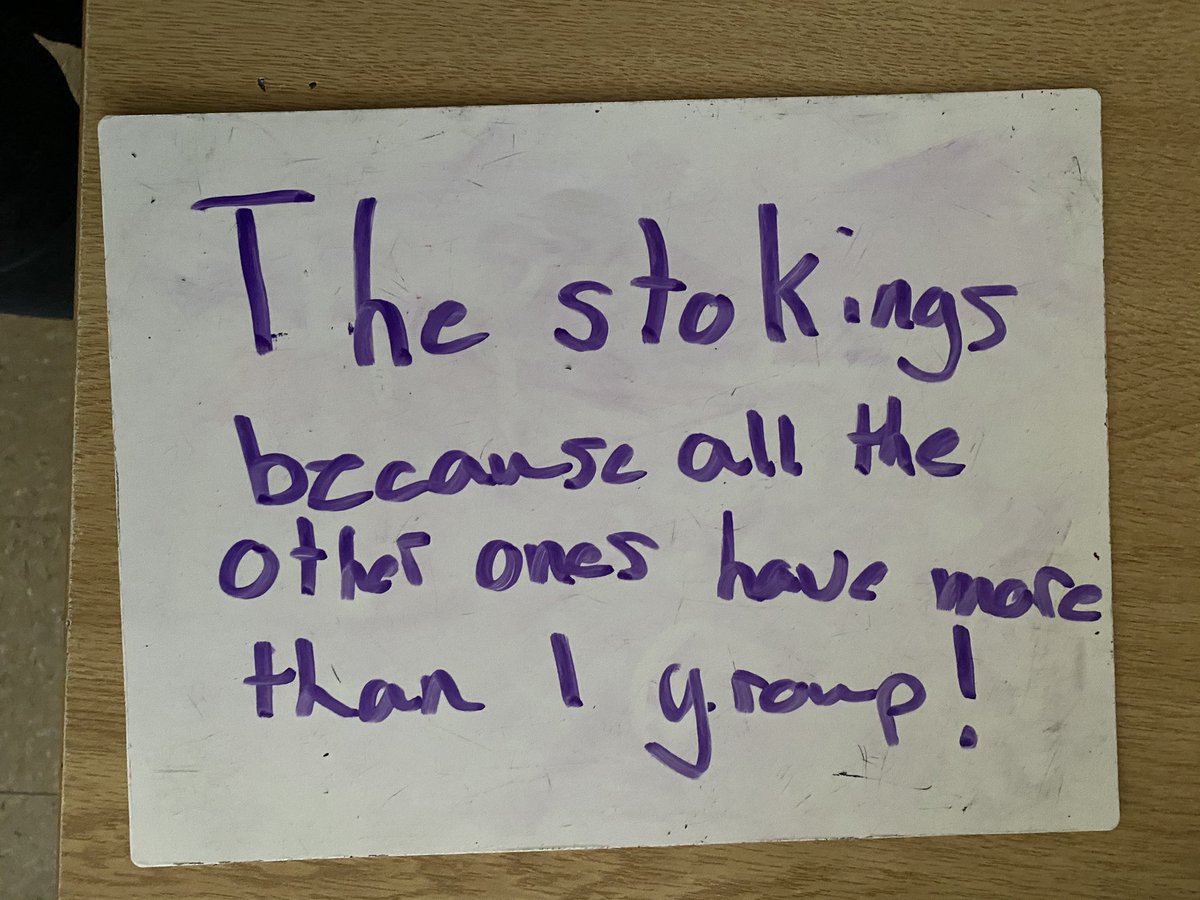 The stokings
because all the
other ones have more
than 1 group!